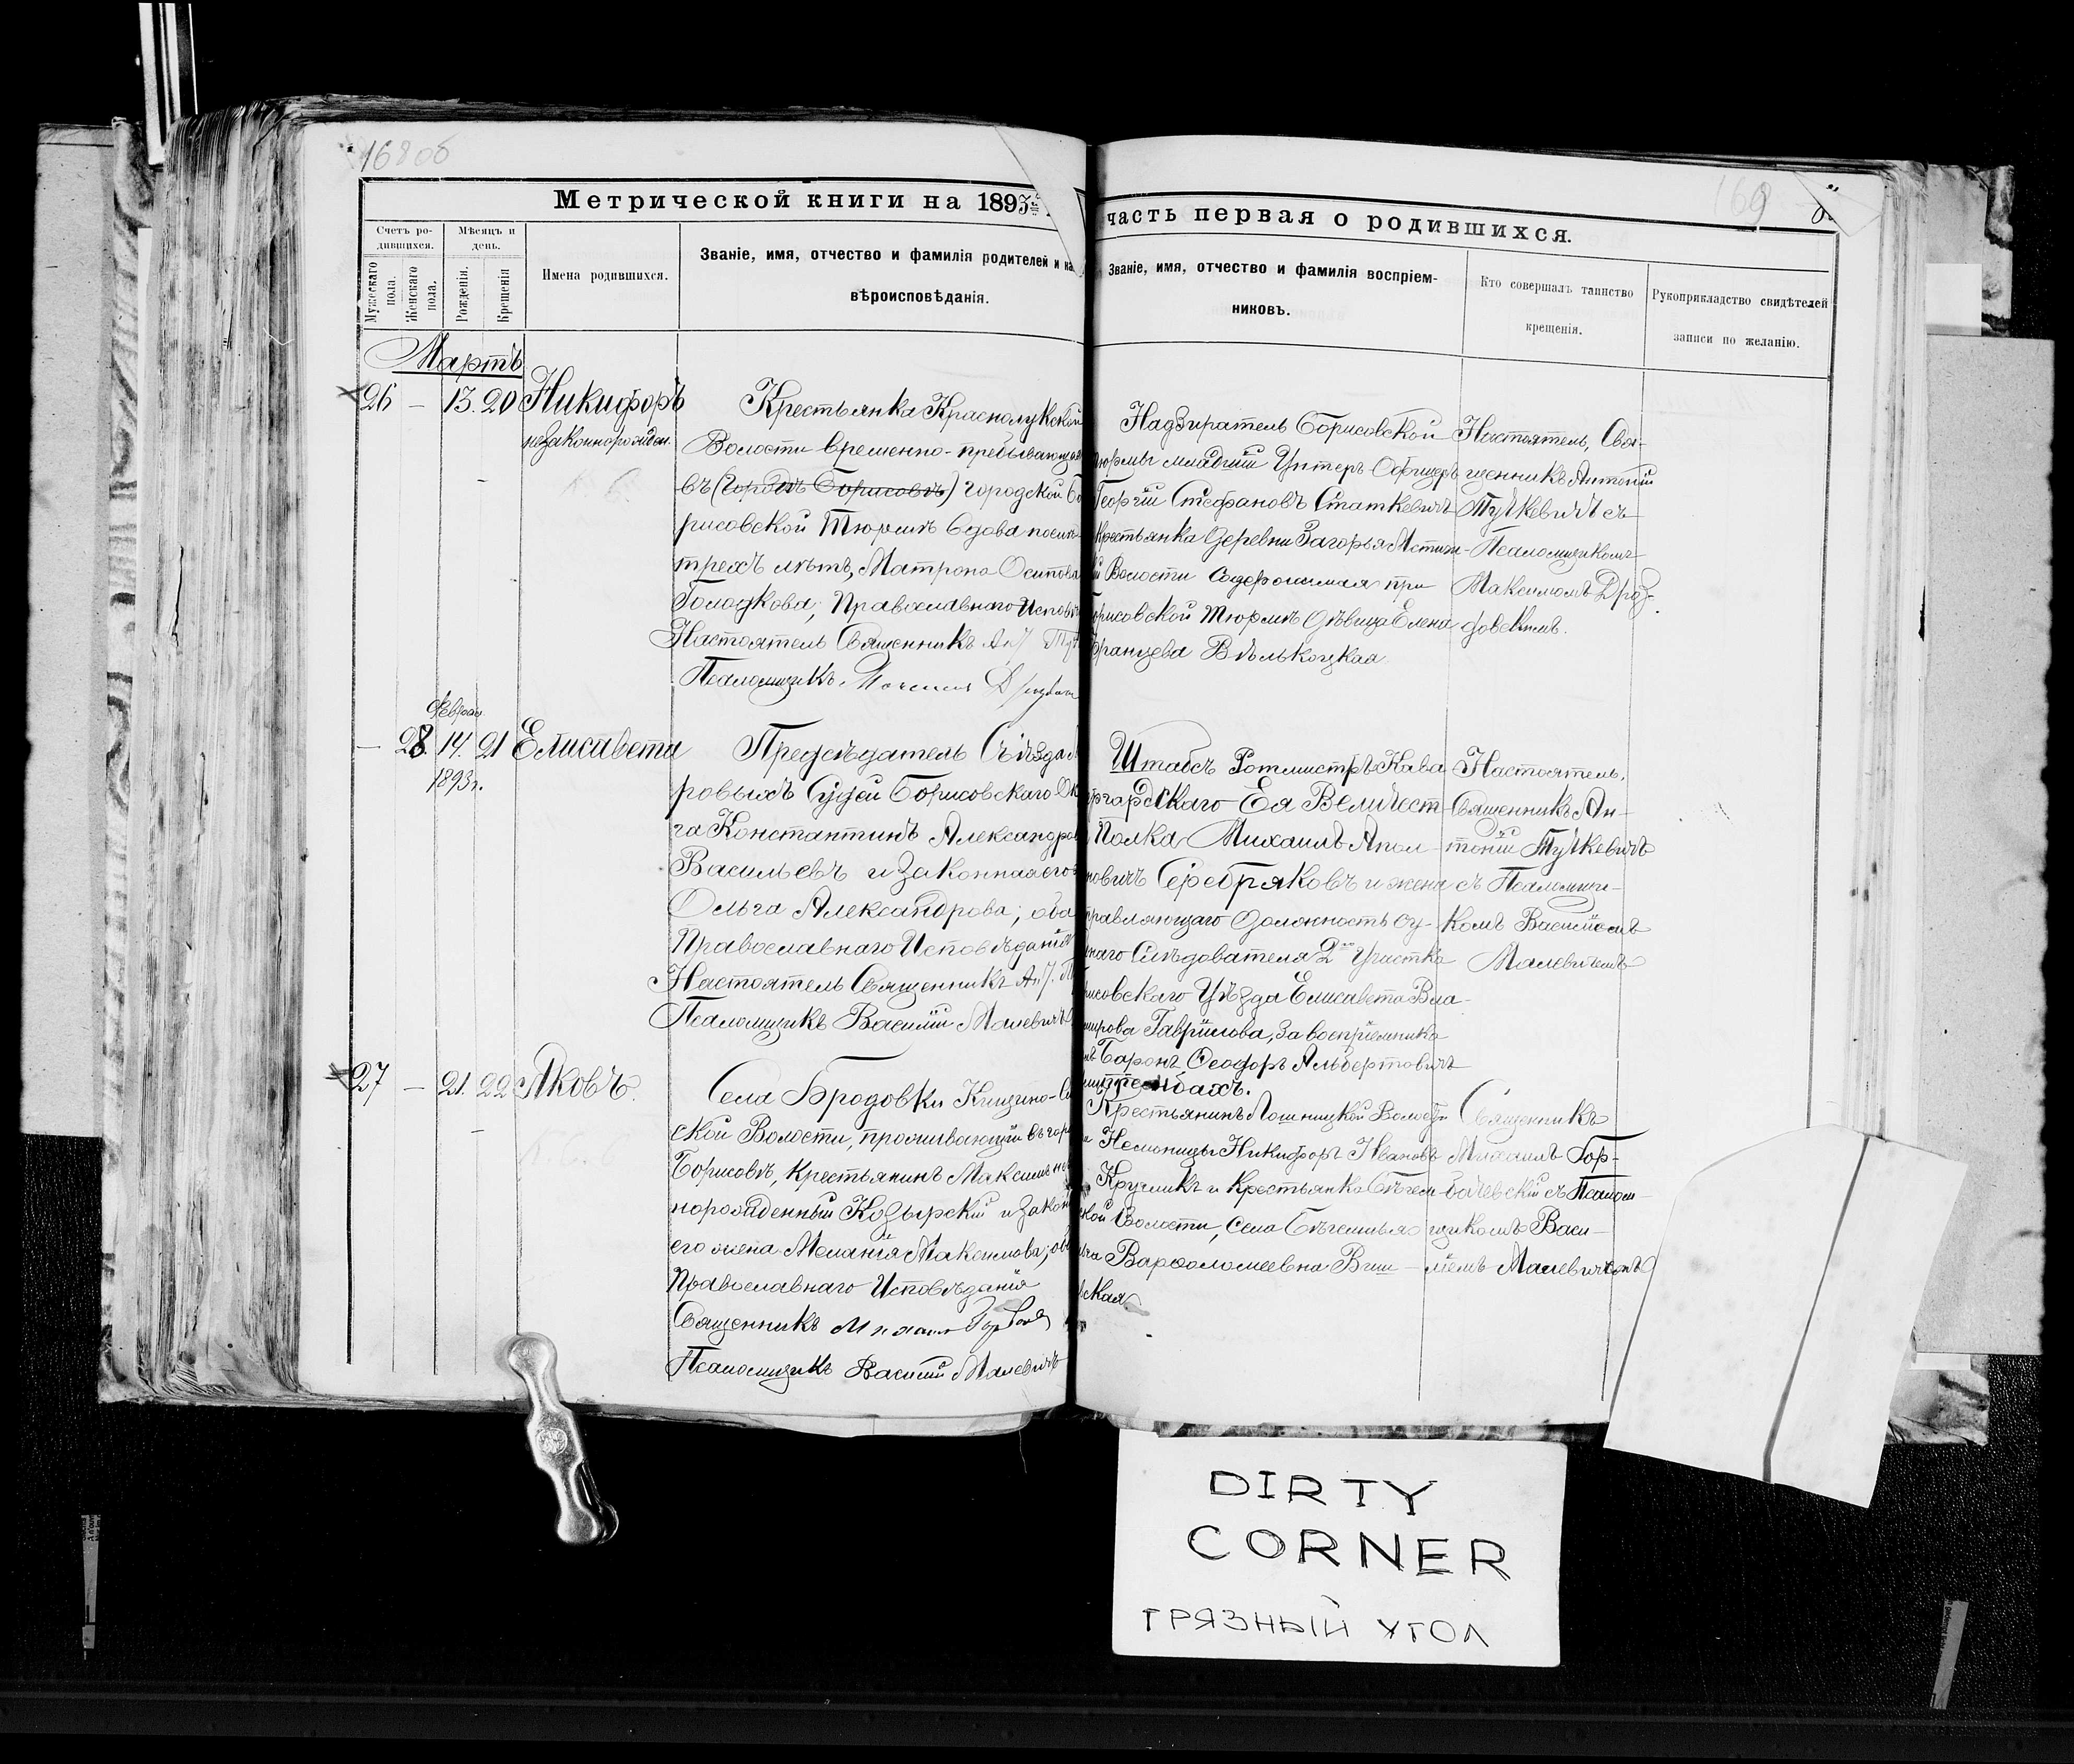 168об
169
Метрической книги на 1893
часть первая о родившихся.
Счетъ ро-
дившихся.
Мужескаго
пола.
Женскаго
пола.
Мѣсяцъ и
день.
Рожденія.
Крещенія
Имена родившихся.
Званіе, имя, отчество и фамилія родителей и
вѣроисповѣданія.
Званіе, имя, отчество и фамилія воспріем-
никовъ.
Кто совершалъ таинство
крещенія.
Рукоприкладство свидѣтелей
записи по желанію.
Мартъ
26 — 13. 20 Никифоръ
незаконнорожден.
Крестьянка Краснолукской
Волости временно-пребывающая
въ (городѣ Борисовѣ) городской Бо
рисовской Тюрьмѣ вдова послѣ
трехъ лѣтъ, Матрона Осипова
Голодкова; Православнаго Исповѣ
Настоятель Священникъ
Псаломщикъ
Надзиратель Борисовской
тюрьмы младшій Унтеръ-Офицеръ
Георгій Стефановъ Статкевичъ
Крестьянка Деревни Загорья Мстиж-
й Волости содержимая при
орисовской Тюрьмѣ дѣвица Елена
Францева Вѣлькоцкая
Настоятель, Свя-
щенникъ Антоній
Тучкевичъ съ
Псаломщикомъ
Максимомъ Дроз-
довскимъ.
Феврал.
— 28 14. 21 Елисавета
1893г.
Предсѣдатель Съѣзда М
ровыхъ Судей Борисовскаго Ок
га Константинъ Александров
Васильевъ и законная его
Ольга Александрова; оба
Православнаго Исповѣданія
Настоятель Священникъ Ант.
Псаломщикъ Василій Малевичъ
Штабсъ Ротмистръ Кава
ргардскаго Ея Величест
Полка Михаилъ Апол
новичъ Серебряковъ и жена
правляющаго должность су-
наго Слѣдователя 2го Участка
рисовскаго Уѣзда Елисавета Вла-
мирова Гаврилова, за воспріемника
Баронъ Ѳеодоръ Альбертовичъ
Настоятель,
Священникъ Ан-
тоній Тучкевичъ
съ Псаломщи-
комъ Василіемъ
Малевичемъ
27 — 21. 22 Яковъ.
Села Бродовки Кищино-Сл
ской Волости, проживающій въ гор
Борисовѣ, Крестьянинъ Максимъ не
норожденный Козырскій и закон
его жена Меланія Максимова; об
Православнаго Исповѣданія
Священникъ Михаилъ
Псаломщикъ Василій Малевичъ
Крестьянинъ Лошницкой Волости
Немоницы Никифоръ Ивановъ
Кругликъ и Крестьянка Бѣгом-
ской Волости, Села Бѣгомля
Варѳоломеевна Виш-
ская
Священникъ
Михаилъ Гор-
бачевскій съ Псалом-
щикомъ Васи-
ліемъ Малевичемъ
DIRTY
CORNER
ГРЯЗНЫЙ УГОЛ